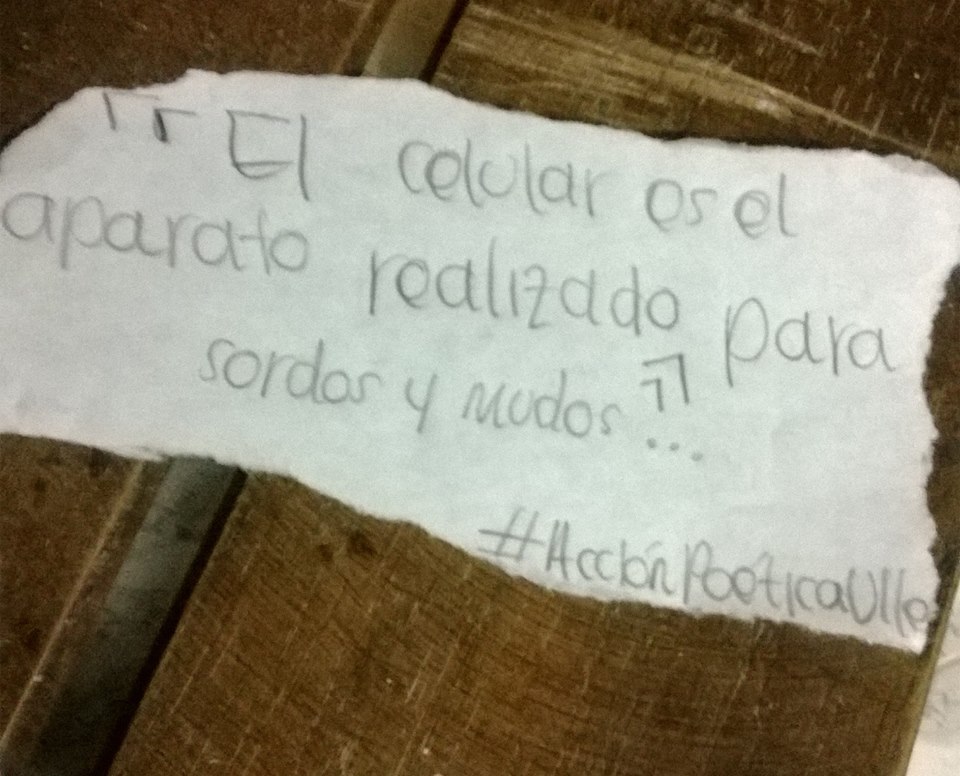 "El celular es el
aparato realizado para
sordos y mudos"...
#AcciónPoeticaUlle